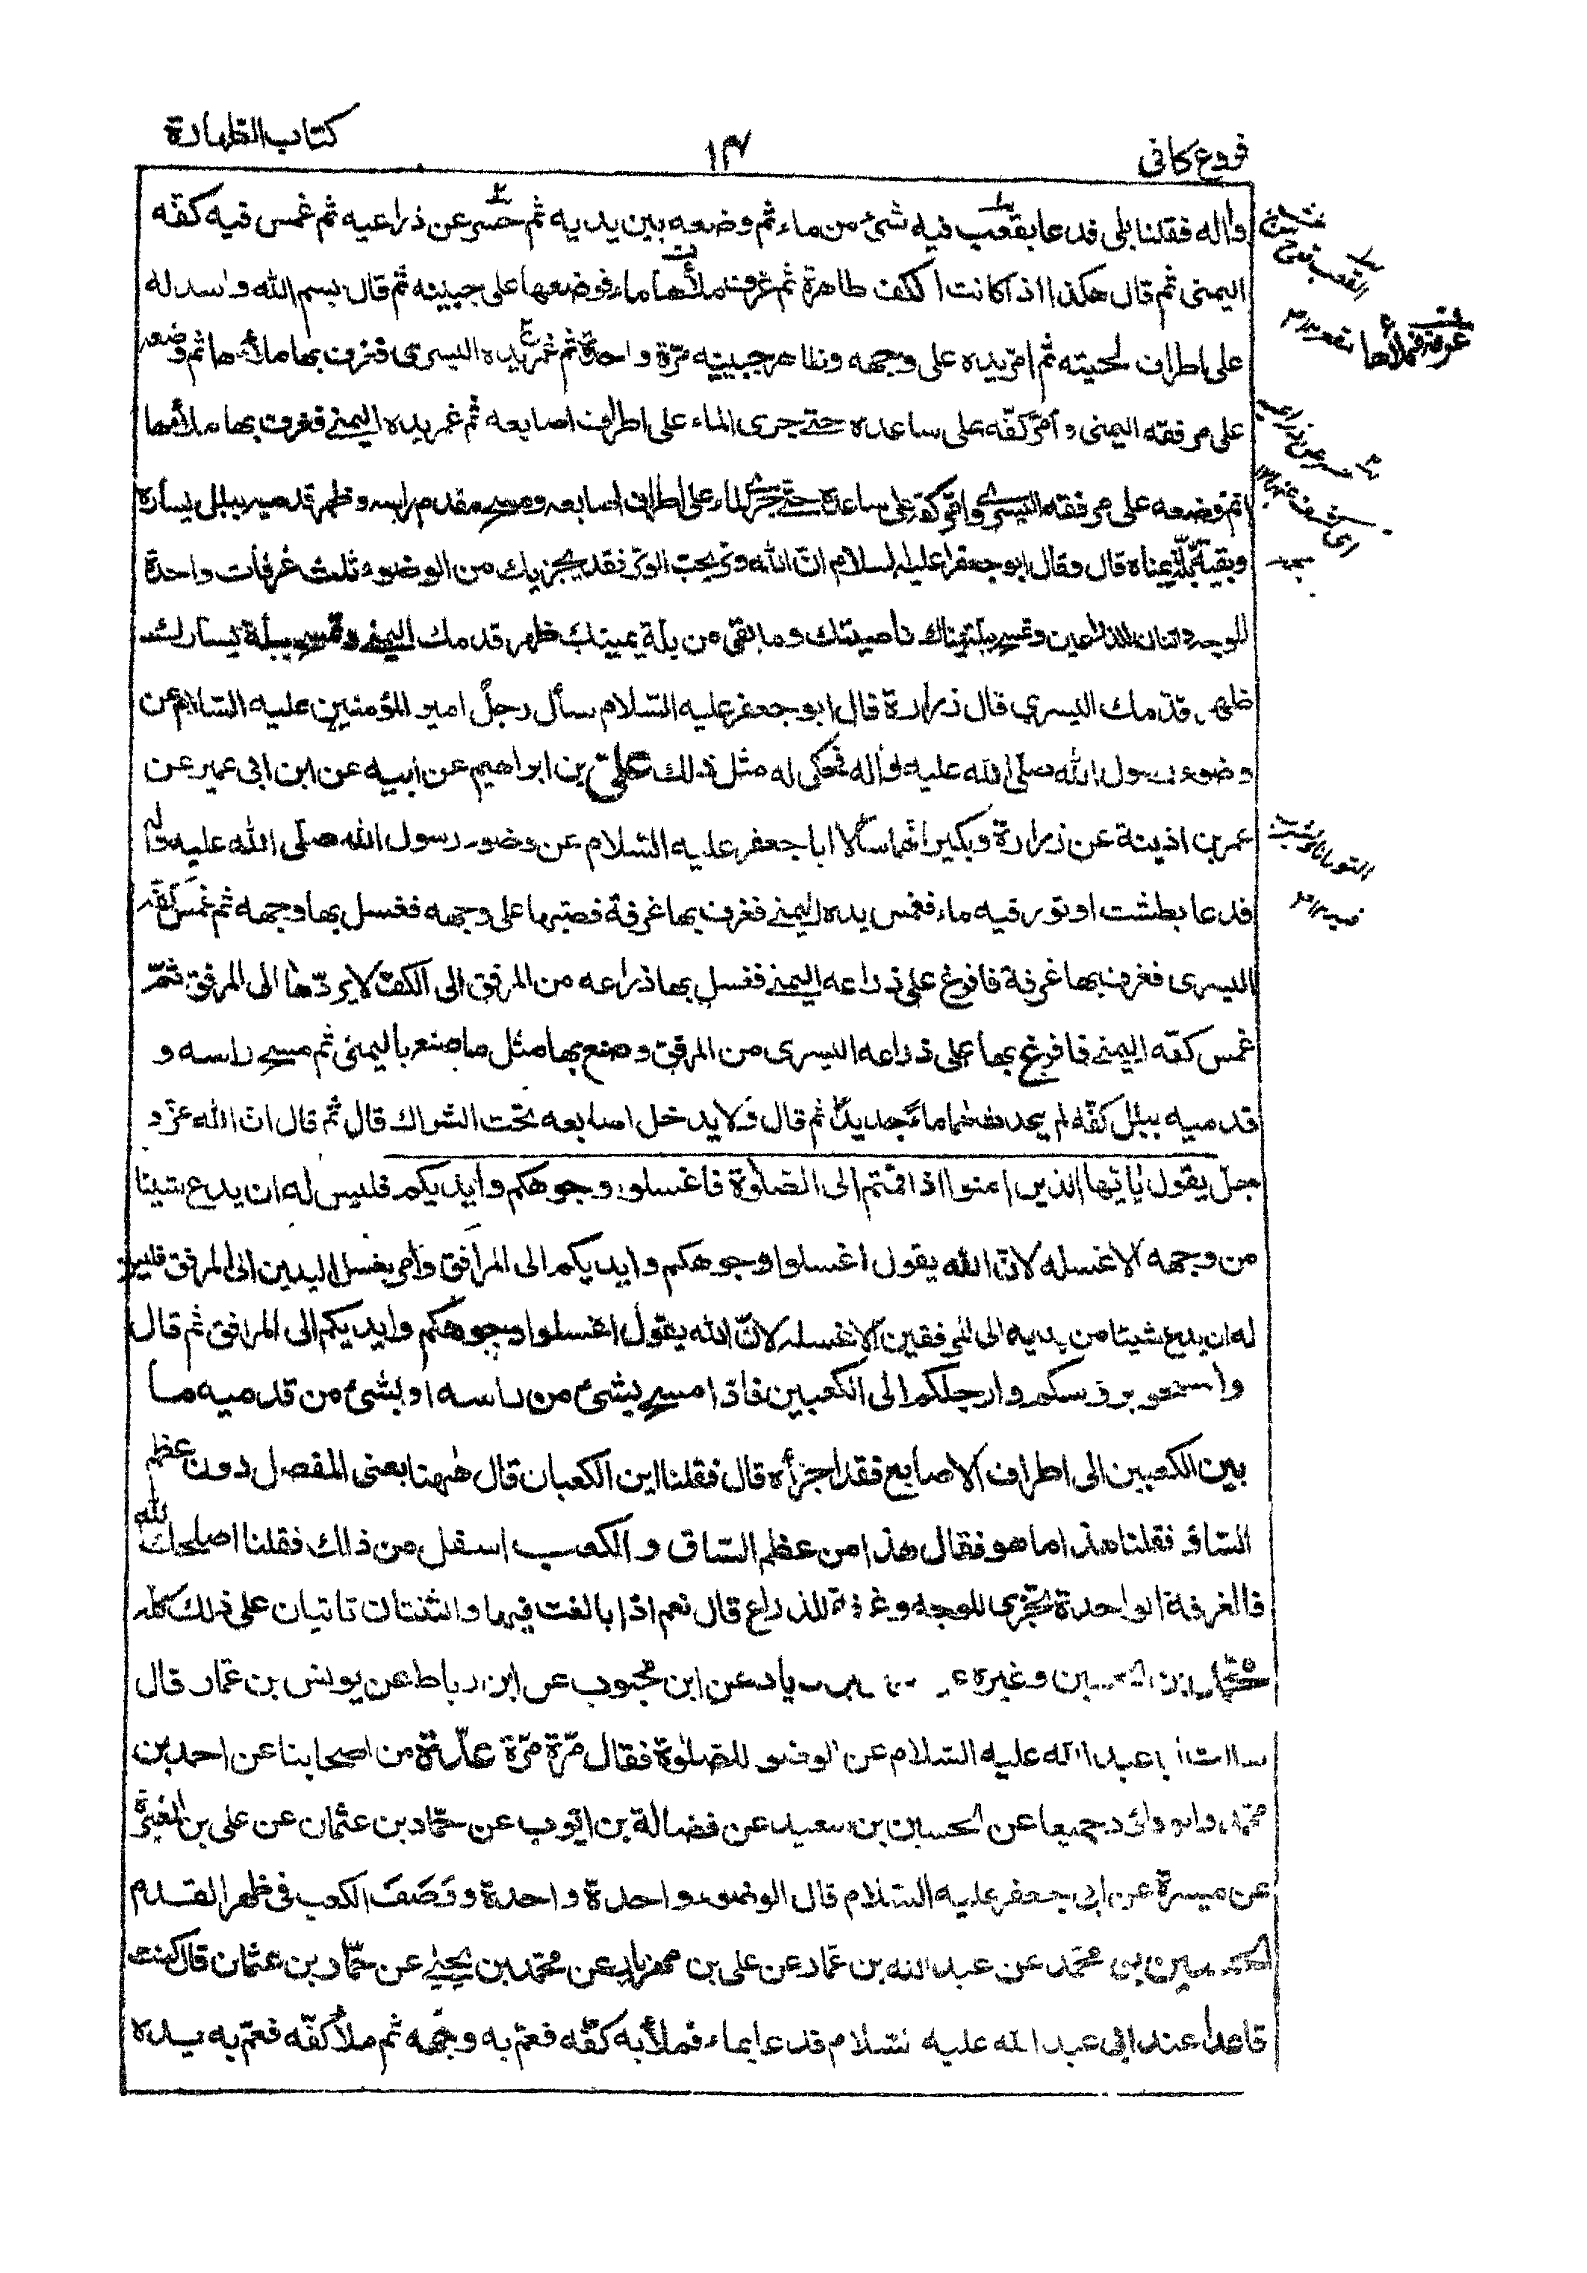 فروع كافى
١٣
كتاب الطهارة
واله فقلنا بلى فدعا بقعب فيه شئ من ماء ثم وضعه بين يديه ثم حسر عن ذراعيه ثم غمس فيه كفّه
اليمنى ثم قال هكذا اذا كانت الكف طاهرة ثم غرف ملأها ماء فوضعها على جبينه ثم قال بسم الله و اسدله
على اطراف لحيته ثم امرّ يده على وجهه وظاهر جبينه مرّة واحدة ثم غمر يده اليسرى فغرف بها ملأها ثم وضعه
على مرفقه اليمنى وأمرّ كفّه على ساعده حتى جرى الماء على اطراف اصابعه ثم غمر يده اليمنى فغرف بها ملأها
ثم وضعه على مرفقه اليسرى وامرّ كفه على ساعده حتى جرى الماء على اطراف اصابعه ومسح مقدم راسه وظهر قدميه ببلل يساره
وبقية بلّة يمناه قال وقال ابو جعفر عليه السلام انّ الله وتر يحبّ الوتر فقد يجزيك من الوضوء ثلث غرفات واحدة
للوجه واثنان للذراعين وتمسح ببلة يمناك ناصيتك وما بقى من بلة يمينك ظهر قدمك اليمنى وتمسح ببلة يسارك
ظهر قدمك اليسرى قال زرارة قال ابو جعفر عليه السّلام سأل رجلٌ امير المؤمنين عليه السّلام عن
وضوء رسول الله صلّى الله عليه واله فحكى له مثل ذلك علىّ بن ابراهيم عن ابيه عن ابن ابى عمير عن
عمر بن اذينة عن زرارة وبكير انّهما سألا ابا جعفر عليه السّلام عن وضوء رسول الله صلّى الله عليه واله
فدعا بطشت او تور فيه ماء فغمس يده اليمنى فغرف بها غرفة فصبّها على وجهه فغسل بها وجهه ثم غمس كفّه
اليسرى فغرف بها غرفة فافرغ على ذراعه اليمنى فغسل بها ذراعه من المرفق الى الكفّ لا يردّها الى المرفق ثمّ
غمس كفّه اليمنى فافرغ بها على ذراعه اليسرى من المرفق وصنع بها مثل ما صنع باليمنى ثم مسح راسه و
قدميه ببلل كفّه لم يحدث لهما ماء جديدًا ثم قال ولا يدخل اصابعه تحت الشراك قال ثمّ قال انّ الله عزّ و
جلّ يقول يا ايّها الذين امنوا اذا قمتم الى الصّلوة فاغسلوا وجوهكم وايديكم فليس له ان يدع شيئا
من وجهه الا غسله لانّ الله يقول اغسلوا وجوهكم وايديكم الى المرافق وامر بغسل اليدين الى المرفق فليس
له ان يدع شيئا من يديه الى المرفقين الا غسله لانّ الله يقول اغسلوا وجوهكم وايديكم الى المرافق ثم قال
وامسحوا برؤسكم وارجلكم الى الكعبين فاذا مسح بشئ من راسه او بشئ من قدميه ما
بين الكعبين الى اطراف الاصابع فقد اجزأه قال فقلنا اين الكعبان قال هٰهنا يعنى المفصل دون عظم
السّاق فقلنا هذا ما هو فقال هذا من عظم السّاق و الكعب اسفل من ذالك فقلنا اصلحك الله
فالغرفة الواحدة تجزى للوجه وغرفة للذراع قال نعم اذا بالغت فيها والثنتان تاتيان على ذلك كلّه
محمّد بن الحسين وغيره عن سهل بن زياد عن ابن محبوب عن ابن رباط عن يونس بن عمّار قال
سالت ابا عبد الله عليه السّلام عن الوضوء للصّلوة فقال مرّة مرّة عدّة من اصحابنا عن احمد بن
محمّد وابو داؤد جميعا عن الحسين بن سعيد عن فضالة بن ايّوب عن حمّاد بن عثمان عن على بن المغيرة
عن ميسرة عن ابى جعفر عليه السّلام قال الوضوء واحدة واحدة ووَصَفَ الكعب فى ظهر القدم
الحسين بن محمّد عن عبد الله بن عمّار عن على بن مهزيار عن محمّد بن يحيى عن حمّاد بن عثمان قال كنت
قاعدا عند ابى عبد الله عليه السّلام فدعا بماء فملأ به كفّه فعمّ به وجهه ثم ملأ كفّه فعمّ به يده
غرفة فملأها